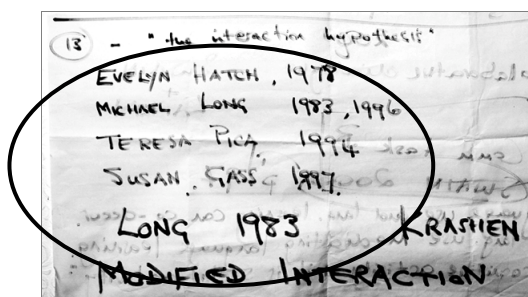 13 - "the interaction hypothesis"
EVELYN HATCH, 1978
MICHAEL LONG 1983, 1996
TERESA PICA 1994
SUSAN GASS 1997.
LONG 1983 KRASHEN
MODIFIED INTERACTION